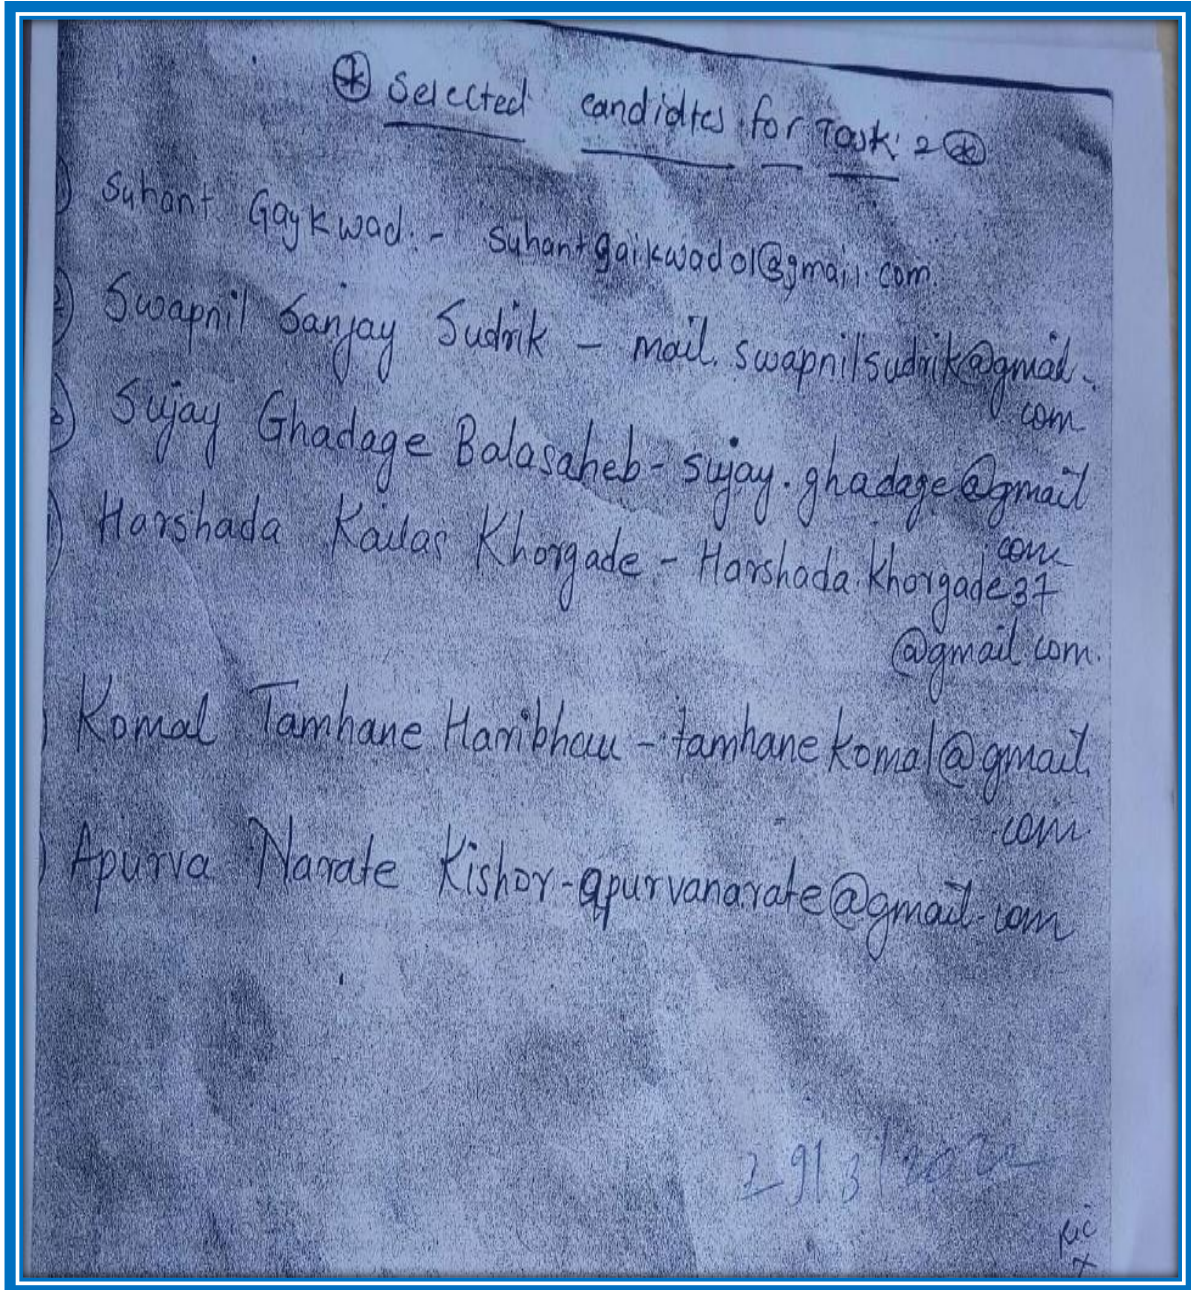 ⊛ Selected candidtes for Task: 2 ⊛
1) Suhant Gaykwad. - suhantgaikwad01@gmail.com.
2) Swapnil Sanjay Sudrik - mail.swapnilsudrik@gmail.
com
3) Sujay Ghadage Balasaheb - sujay.ghadage@gmail
.com
) Harshada Kailas Khorgade - Harshada.khorgade37
@gmail.com.
) Komal Tamhane Haribhau - tamhanekomal@gmail
.com
) Apurva Narate Kishor - apurvanarate@gmail.com
29/3/2022